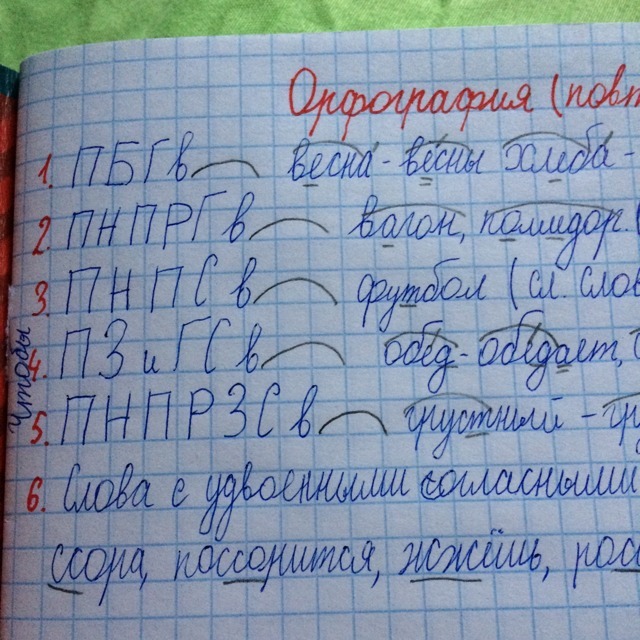 Орфография (повт
1. ПБГ в весна́ - ве́сны хлеба́ -
2. ПНПРГ в вагон, помидор. (
3. ПНПС в футбол (сл. слов
4. ПЗ и ГС в обед - обедает,
5. ПНПРЗС в грустный - гру
6. Слова с удвоенными согласными
ссора, поссорится, жжёшь, рос
Чтобы